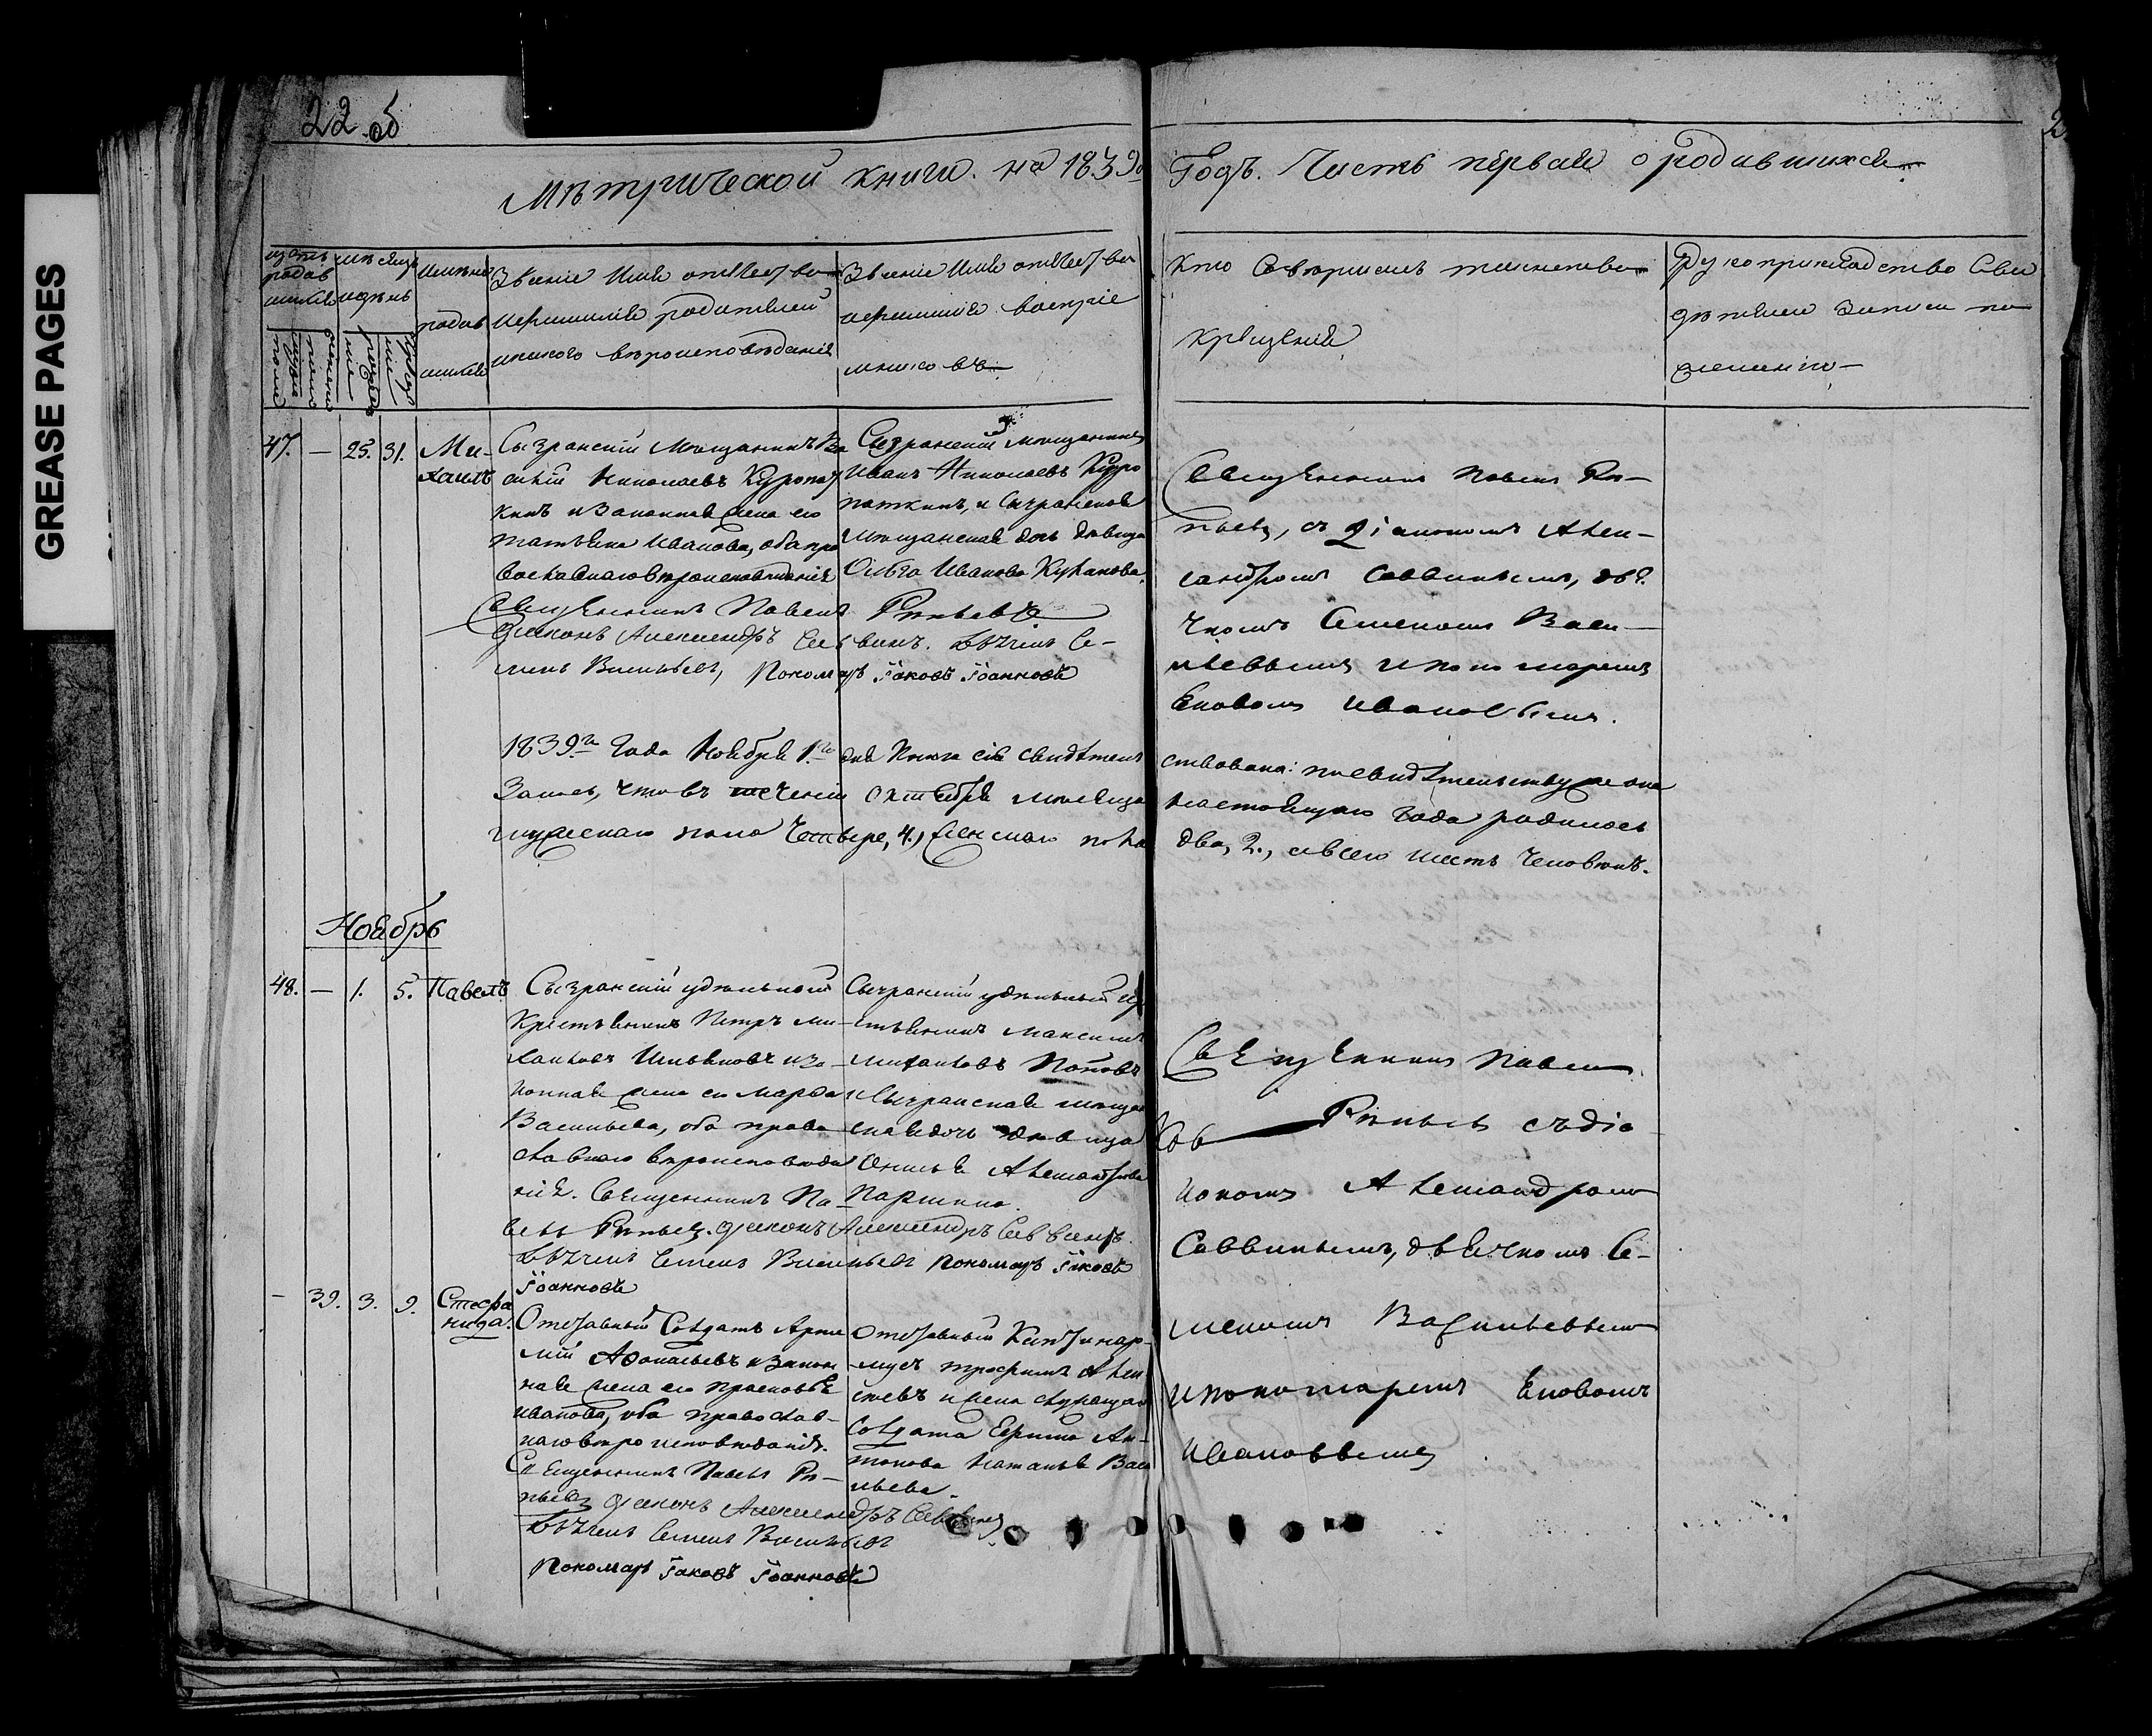 GREASE PAGES
22 об
Мѣтрической книги. на 1839й
Годъ. Часть первая о родившихся
счетъ родив шихся
мѣсяцъ и день
имена родив шихся
Званіе Имя отчество
и фамилія родителей
и какого вѣроисповѣданія
Званіе Имя отчество
и фамилія воспріе
мниковъ
Кто Совершалъ таинство
крещенія
Рукоприкладство Сви
дѣтелей записи по
желанію
мужеска пола
женска пола
рожденіе
крещеніе
47. — 25. 31. Ми-
хаилъ
Сызранскій Мѣщанинъ Ва
силій Николаевъ Куропат
кинъ и Законная жена его
Татьяна Иванова, оба пра
вославнаго вѣроисповѣданія
Сызранскій мѣщанинъ
Иванъ Николаевъ Куро
паткинъ, и Сызранская
мѣщанская дочь дѣвица
Ольга Иванова
Священникъ Павелъ Рѣпьевъ
Діаконъ Александръ Саввинъ. Дьячекъ Се-
менъ Васильевъ, Пономарь Іаковъ Іоанновъ
Священникъ Павелъ Рѣ-
пьевъ, съ діакономъ Алек-
сандромъ Саввинымъ, дья
чкомъ Семеномъ Васи-
льевымъ и пономаремъ
Яковомъ Ивановымъ.
1839го Года Ноября 1го дня Книга сія свидѣтель
ствована: по свидѣтельству же она
Залось, что въ теченіи Октября мѣсяца
настоящаго Года родилось
мужескаго пола Четыре, 4, Женскаго пола
два, 2., а всего шесть Человѣкъ.
Ноябрь
48. — 1. 5. Павелъ
Сызранскій удѣльной
Крестьянинъ Петръ Ми-
хайловъ и За-
конная жена его Марфа
Васильева, оба право
славнаго вѣроисповѣда
нія. Священникъ Па-
велъ Рѣпьевъ. Діаконъ Александръ Саввинъ.
Дьячекъ Семенъ Васильевъ Пономарь Іаковъ
Іоанновъ
Сызранскій удѣльный кр
стьянинъ Максимъ
Михайловъ Поповъ
и Сызранская мѣщан
ская дочь дѣвица
Анисья Александрова
Паршина.
Священникъ Павелъ
Рѣпьевъ съ діа
кономъ Александромъ
Саввинымъ, дьячкомъ Се-
меномъ Васильевымъ
и пономаремъ Яковомъ
Ивановымъ
— 39. 3. 9. Стефа
нида.
Отставный Солдатъ Арте
мій Афонасьевъ и Закон
ная жена его Прасковья
Иванова, оба православ-
наго вѣроисповѣданія.
Священникъ Павелъ Рѣ-
пьевъ Діаконъ Александръ Саввинъ
Дьячекъ Семенъ Васильевъ
Пономарь Іаковъ Іоанновъ
Отставный Каптинар-
мусъ Трофимъ Алек
сѣевъ и жена служащаго
Солдата Ефима Ан-
тонова Наталья Васи
льева.